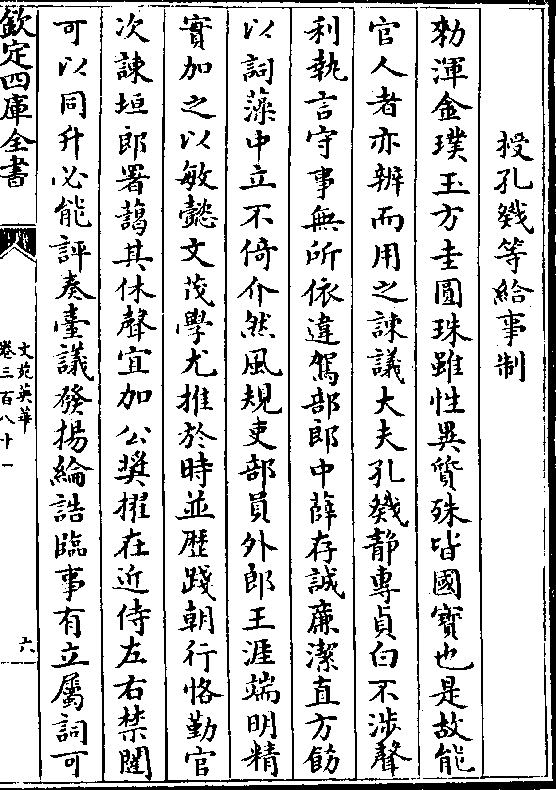 授孔戣等給事制
勑渾金璞玉方圭圓珠雖性異質殊皆國寳也是故能
官人者亦辨而用之諫議大夫孔戣静專貞白不渉聲
利執言守事無所依違駕部郎中薛存誠廉潔直方飭
以詞藻中立不倚介然風規吏部員外郎王涯端明精
實加之以敏懿文茂學尤推於時並歴踐朝行恪勤官
次諫垣郎署藹其休聲宜加公奬擢在近侍左右禁闥
可以同升必能評奏臺議發揚綸誥臨事有立屬詞可
欽定四庫全書
文苑英華
卷三百八十一
六